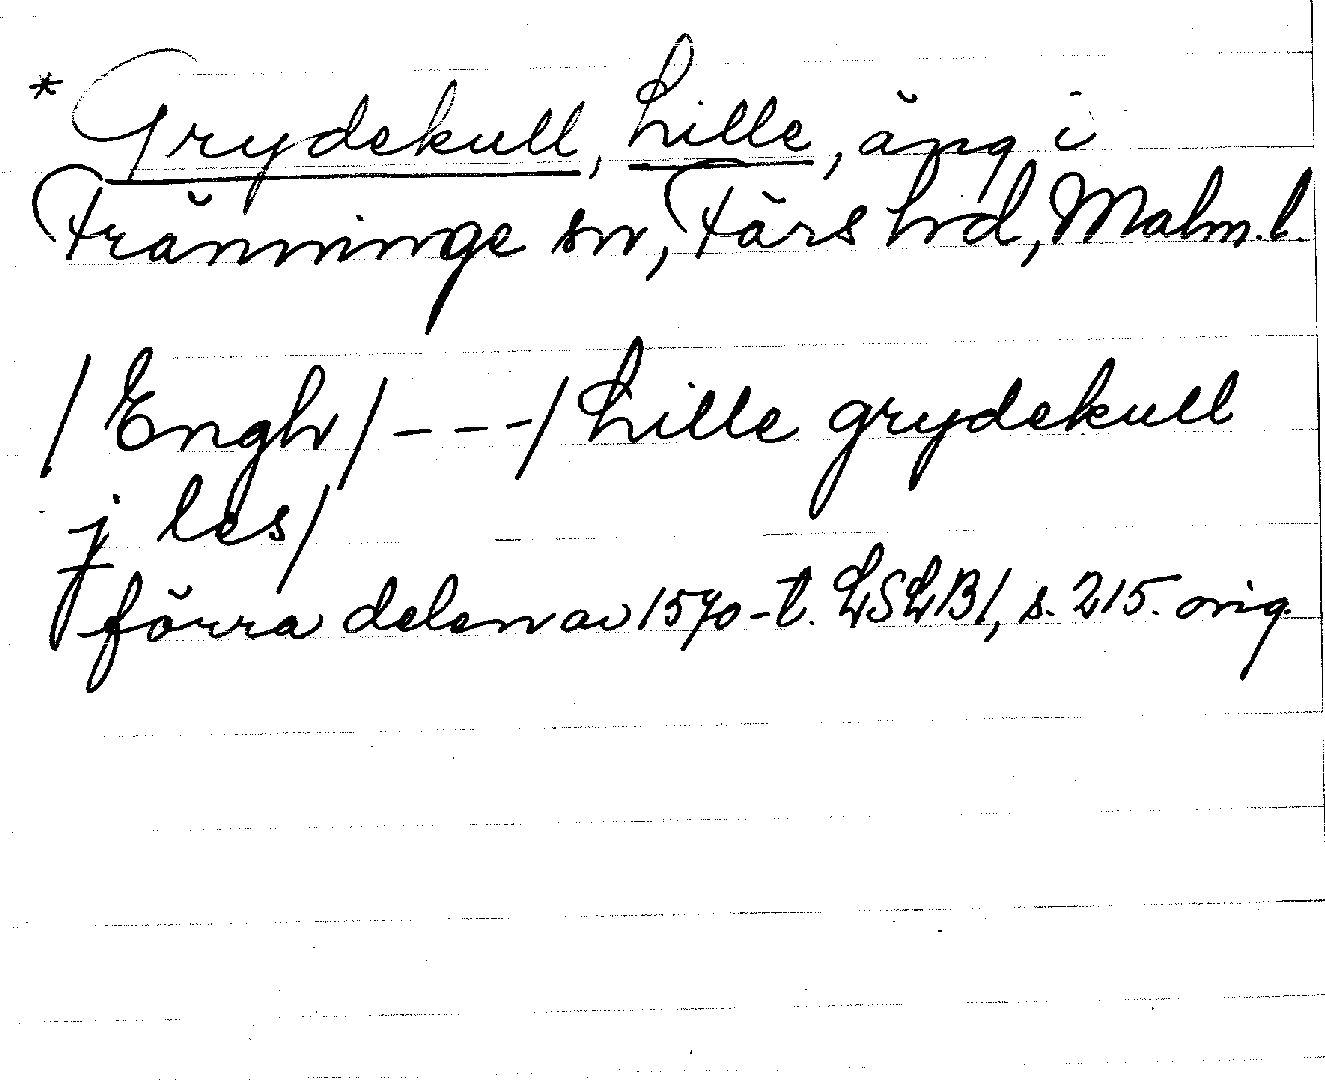 * Grydekull, Lille, äng i
Tränninge sn, Färs hd, Malm. l.
/Engh/---/Lille grydekull
j les/
förra delen av 1570-t. LSLB1, s. 215. orig.